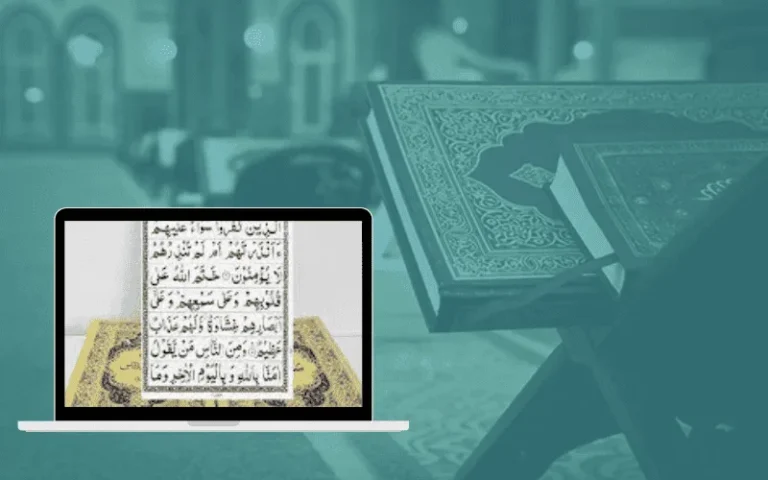 الَّذِيْنَ كَفَرُوْا سَوَآءٌ عَلَيْهِمْ
ءَاَنْذَرْتَهُمْ اَمْ لَمْ تُنْذِرْهُمْ
لَا يُؤْمِنُوْنَ خَتَمَ اللّٰهُ عَلٰى
قُلُوْبِهِمْ وَعَلٰى سَمْعِهِمْ وَعَلٰٓى
اَبْصَارِهِمْ غِشَاوَةٌ وَّلَهُمْ عَذَابٌ
عَظِيْمٌ وَمِنَ النَّاسِ مَنْ يَّقُوْلُ
اٰمَنَّا بِاللّٰهِ وَبِالْيَوْمِ الْاٰخِرِ وَمَا